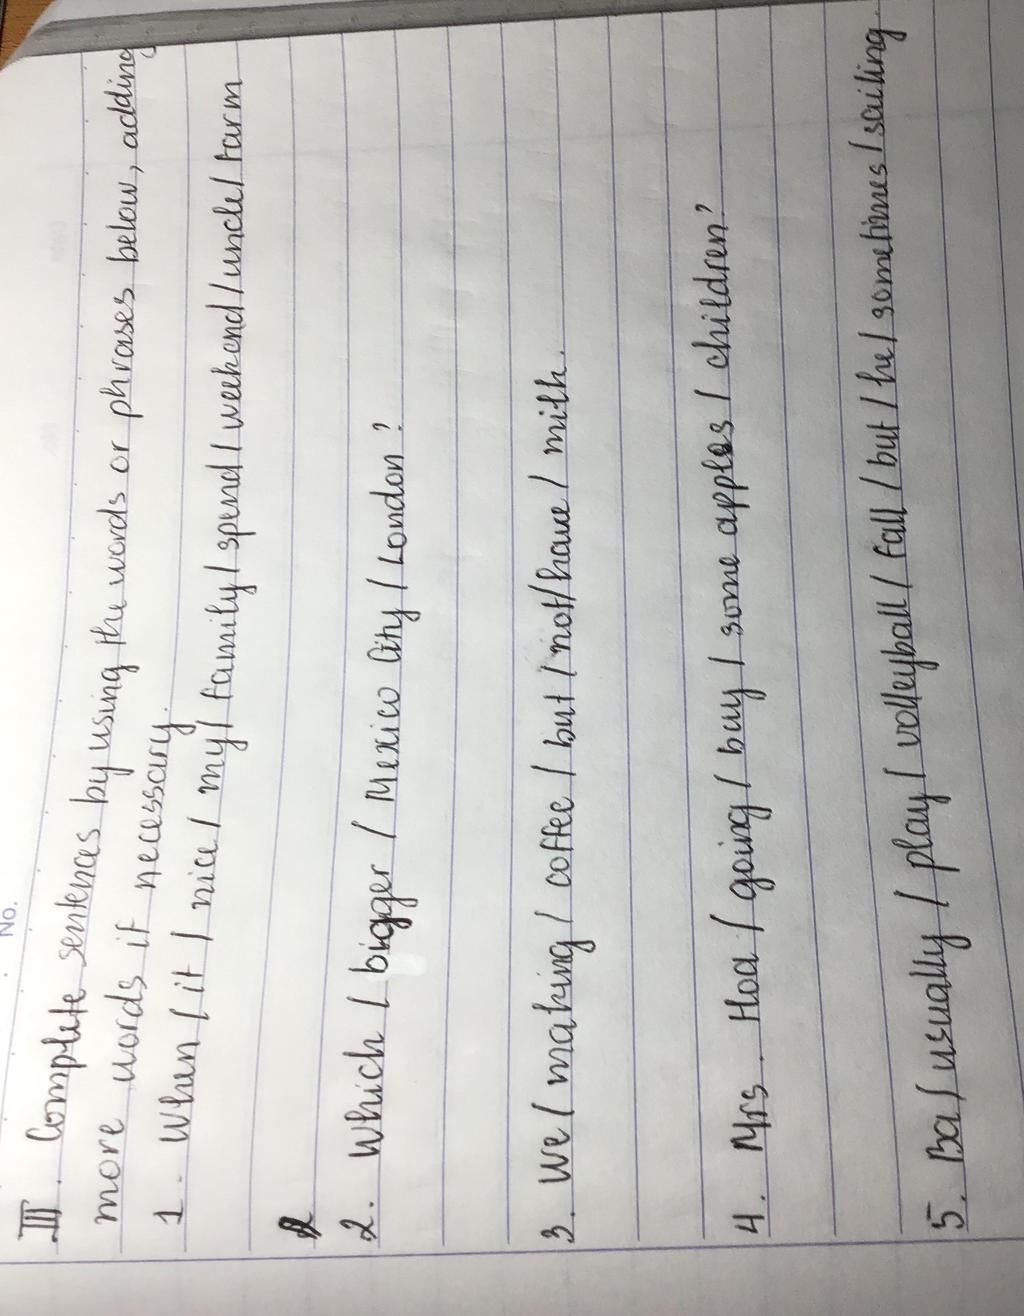 No.
III. Complete sentences by using the words or phrases below, adding
more words if necessary.
1. When / it / nice / my / family / spend / weekend / uncle / farm
2. Which / bigger / Mexico City / London ?
3. We / making / coffee / but / not / have / milk.
4. Mrs. Hoa / going / buy / some apples / children?
5. Ba / usually / play / volleyball / fall / but / he / sometimes / sailing.